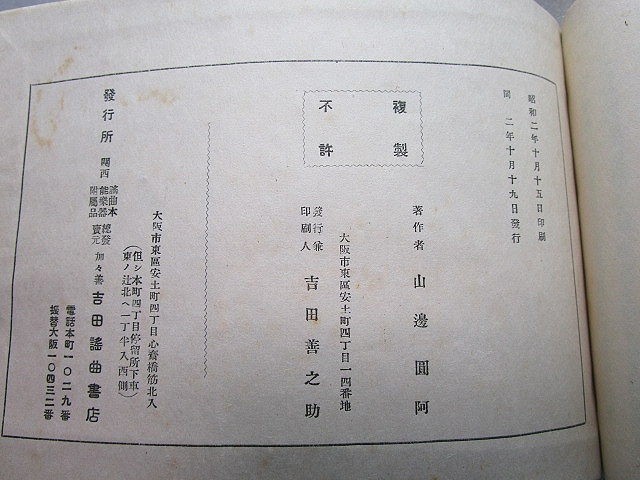 昭和二年十月十五日印刷
同 二年十月十九日發行
複製
不許
著作者 山邊圓阿
大阪市東區安土町四丁目一四番地
發行兼
印刷人 吉田善之助
大阪市東區安土町四丁目心齋橋筋北入
(但シ本町四丁目停留所下車
東ノ辻北ヘ一丁半入西側)
發行所 關西 謠曲本 能樂器 附屬品 總發 賣元 加々善 吉田謠曲書店
電話本町一〇二九番
振替大阪一〇四三二番